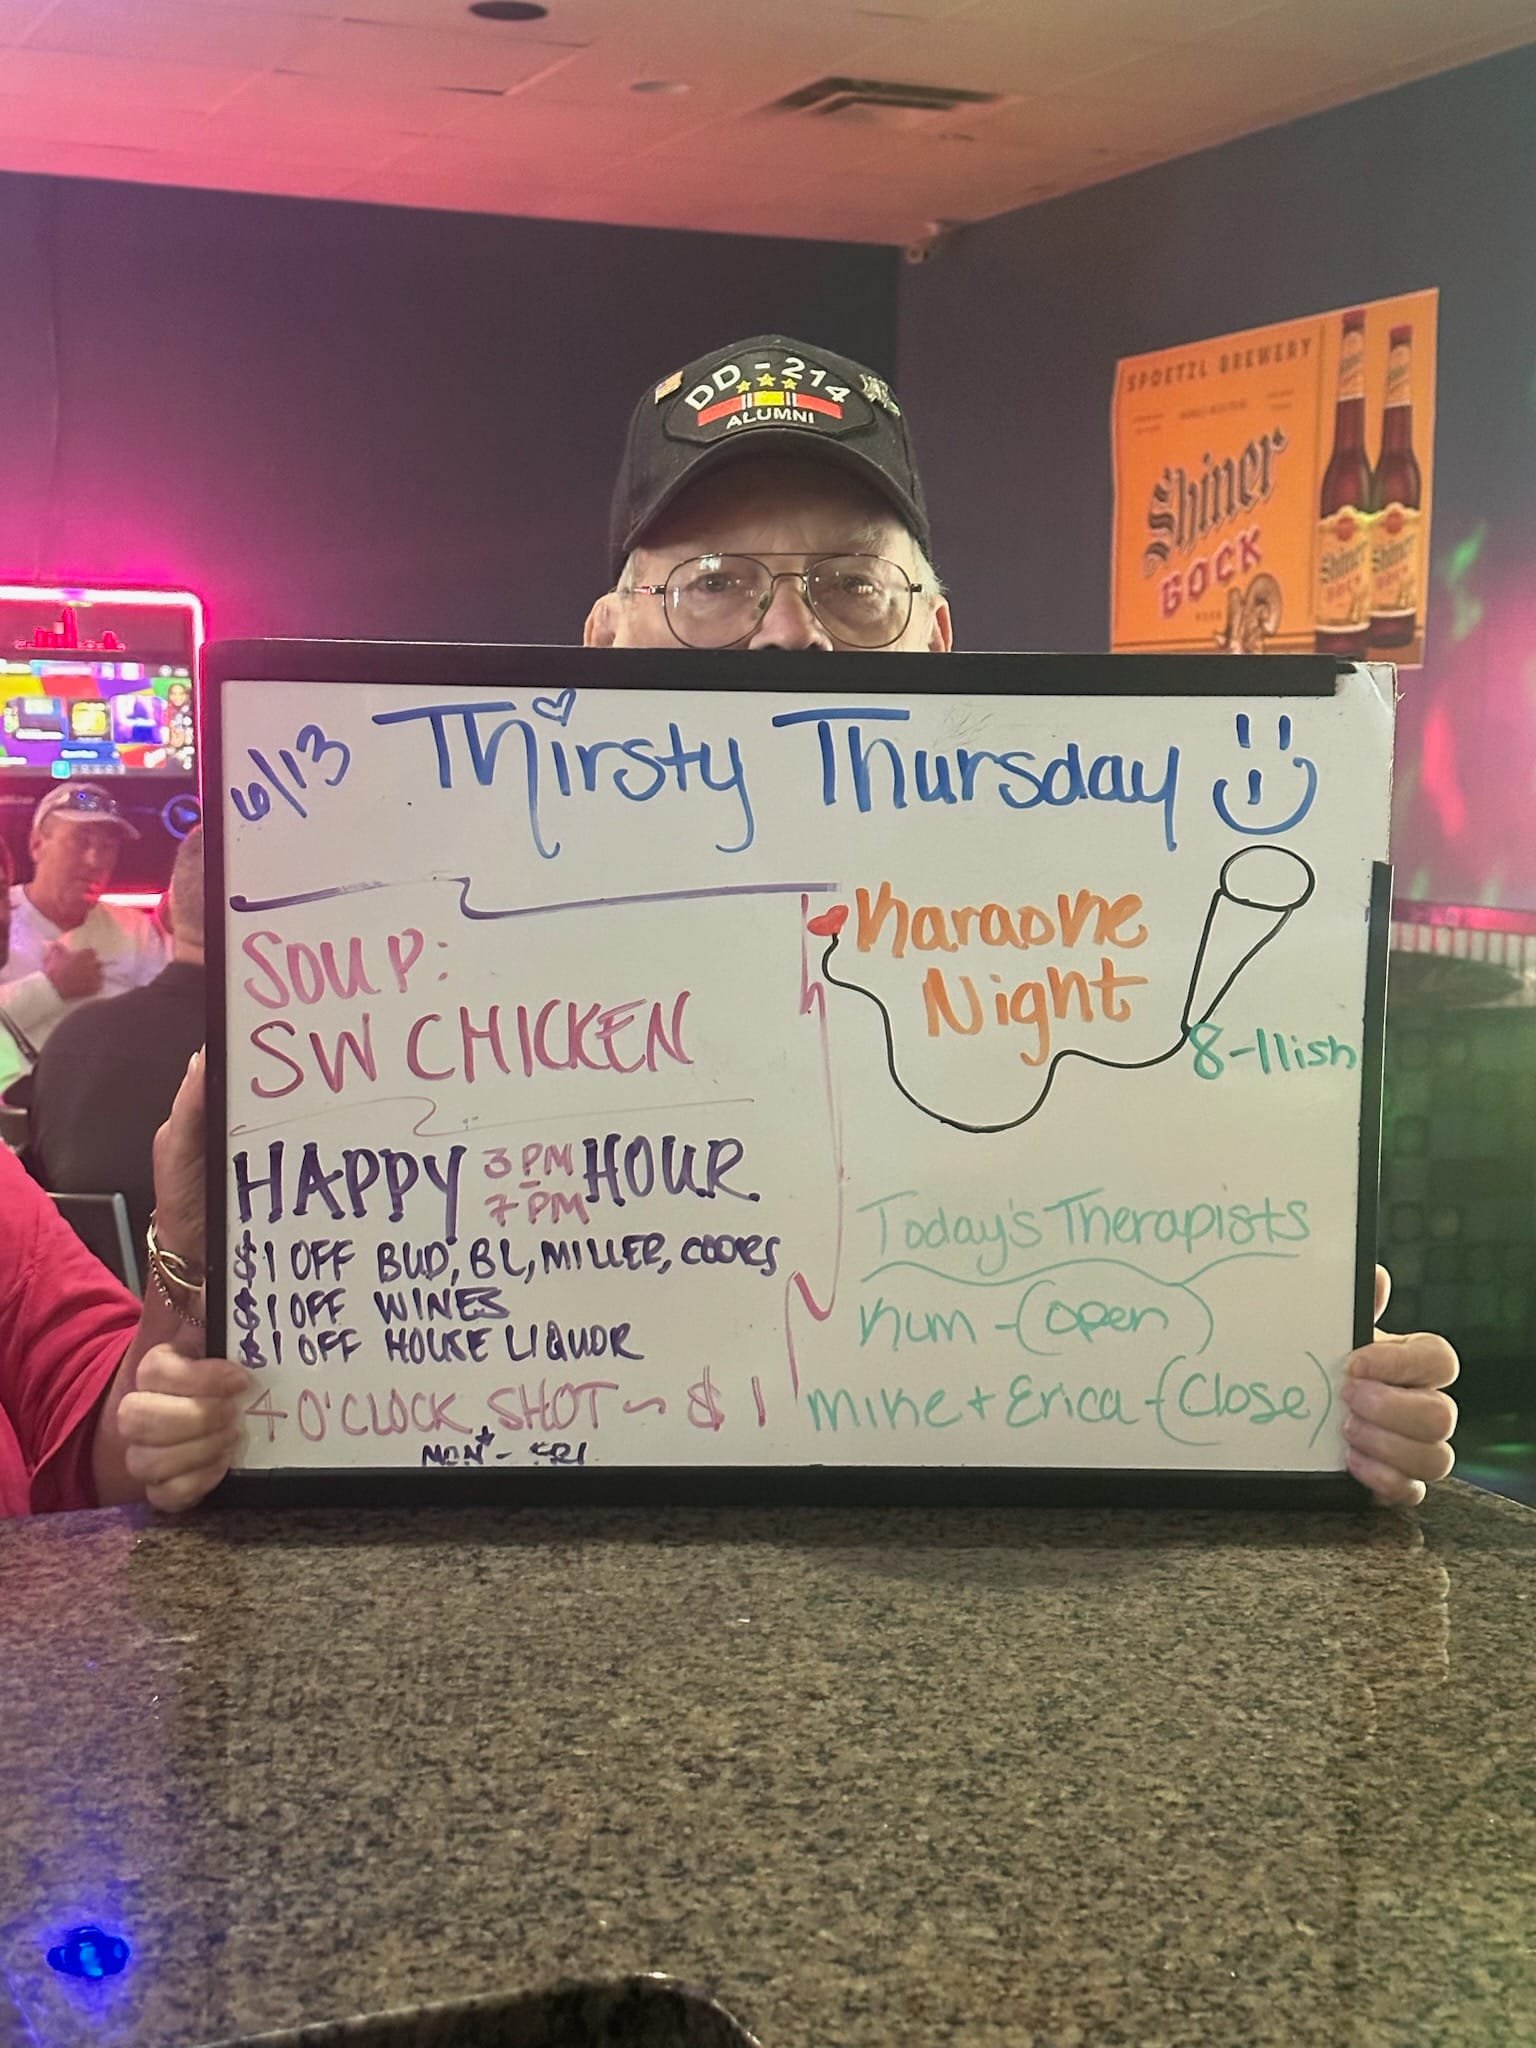 DD-214
ALUMNI
SPOETZL BREWERY
Shiner
BOCK
6/13 Thirsty Thursday
SOUP:
SW CHICKEN
HAPPY 3PM - 7PM HOUR
$1 OFF BUD, BL, MILLER, COORS
$1 OFF WINES
$1 OFF HOUSE LIQUOR
4 O'CLOCK SHOT ~ $1
MON - FRI
Karaoke
Night
8-11ish
Today's Therapists
Kim - (open)
Mike + Erica - (Close)